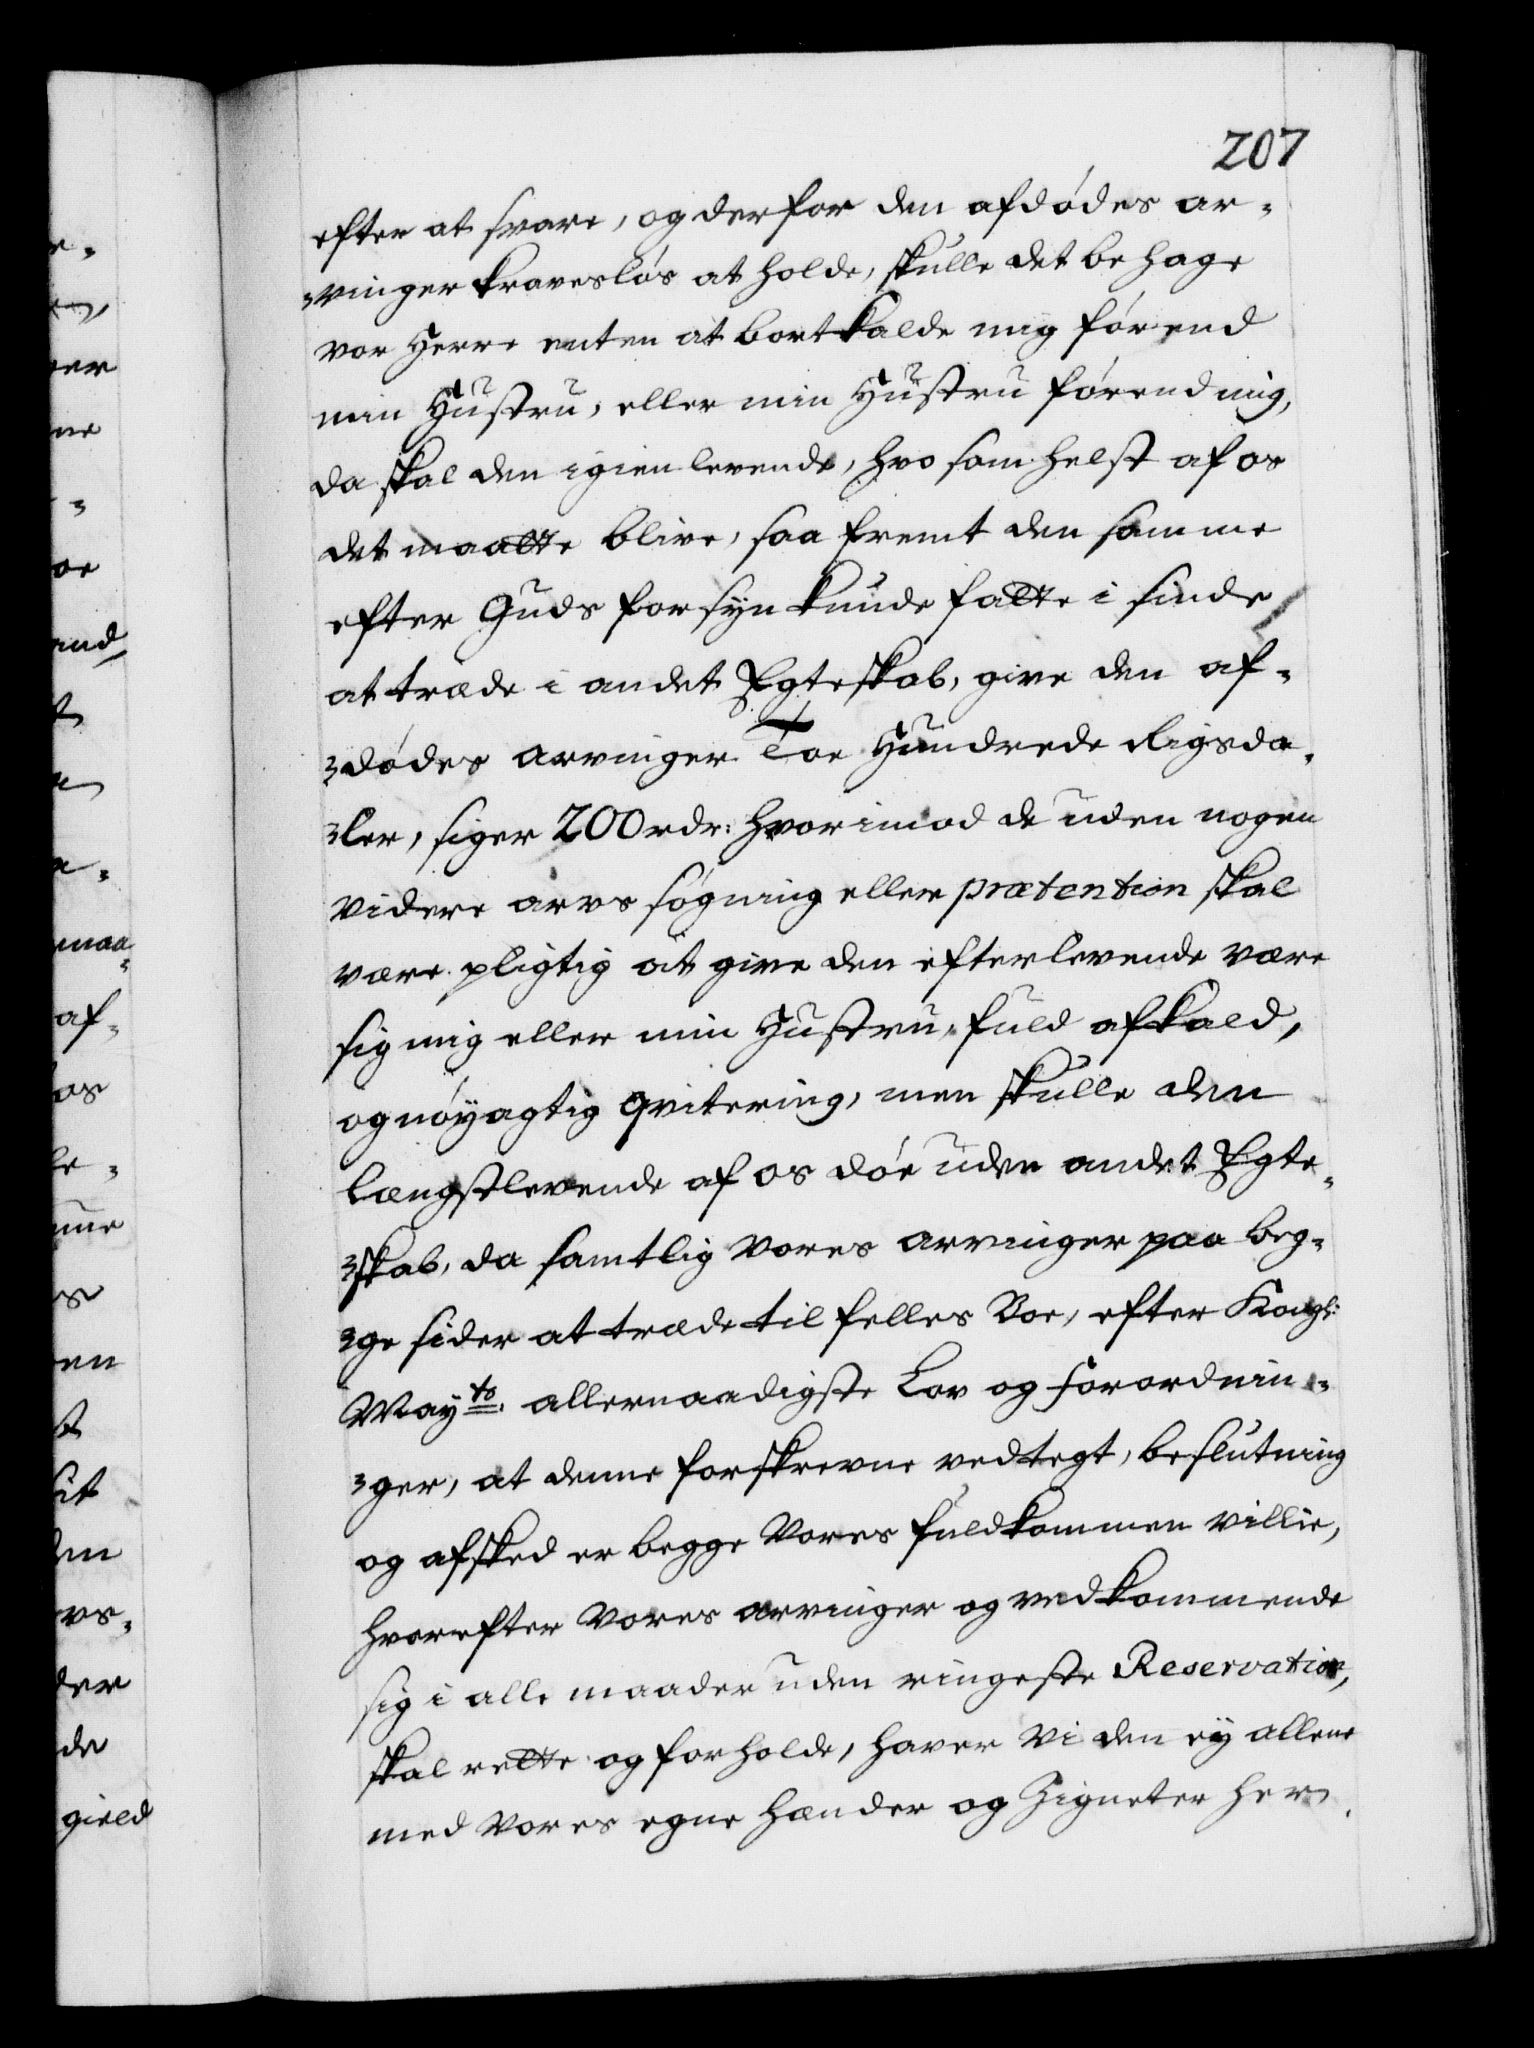 207
efter at svare, og derfor den afdødes ar-
-vinger kravesløs at holde, skulle det behage
vor Herre enten at bortkalde mig førend
min Hustru, eller min Hustru førend mig,
da skal den igienlevende, hvo som helst af os
det maatte blive, saa fremt den samme
efter Guds forsyn kunde fatte i sinde
at træde i andet Egteskab, give den af-
-dødes arvinger Toe Hundrede Rigsda-
-ler, siger 200 rdr: hvorimod de uden nogen
videre arvs søgning eller prætention skal
være pligtig at give den efterlevende være
sig mig eller min Hustru, fuld afkald,
og nøyagtig qvitering, men skulle den
længstlevende af os døe uden andet Egte-
-skab, da samtlig vores arvinger paa beg-
-ge sider at træde til felles Boe, efter Kongl:
Mayts. allernaadigste Lov og forordnin-
-ger, at denne forskrevne vedtegt, beslutning
og afsked er begge vores fuldkommen villie,
hvorefter vores arvinger og vedkommende
sig i alle maader uden ringeste Reservation,
skal rette og forholde, haver vi den ey allene
med vores egne hænder og Zigneter her
r-
er
ne
-
oe
and
t
n-
maa-
af-
os
le-
nne
en
st
sit
den
vs-
der
de
gield